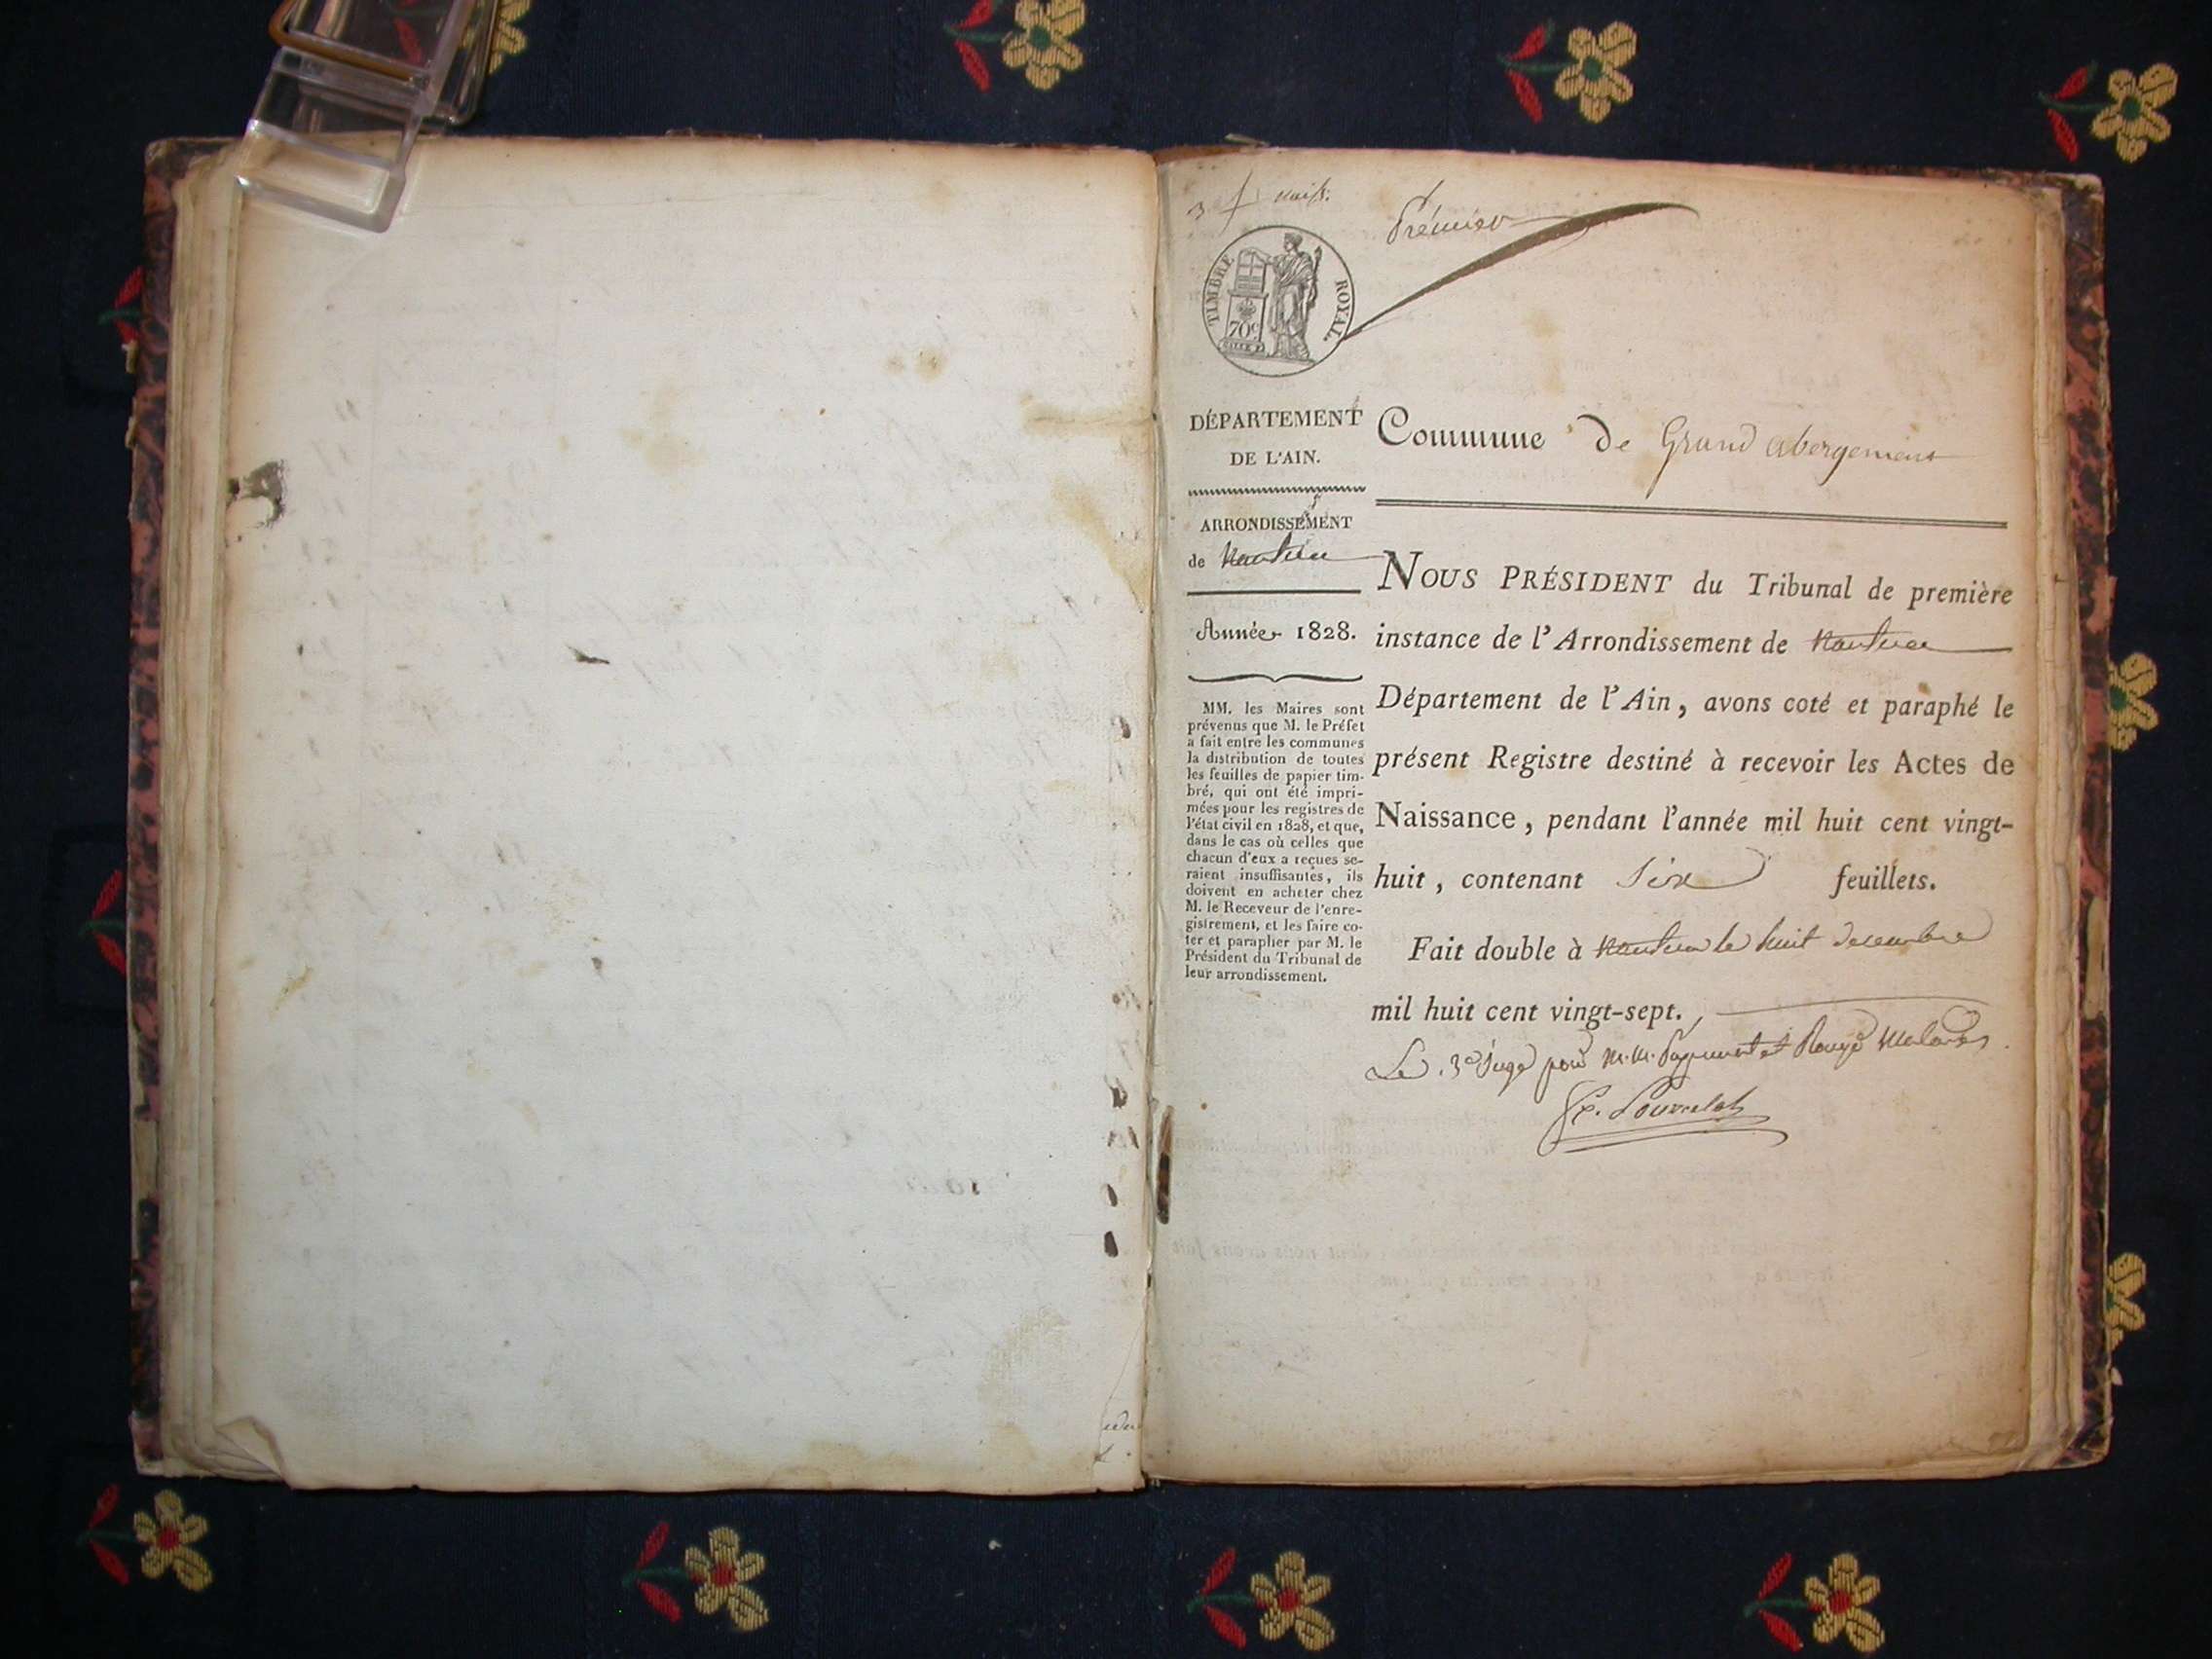 3 naiss.
Premier
TIMBRE ROYAL.
70c
DÉPARTEMENT
DE L'AIN.
Commune de Grand abergement
ARRONDISSEMENT
de Nantua
Année 1828.
MM. les Maires sont
prévenus que M. le Préfet
a fait entre les communes
la distribution de toutes
les feuilles de papier tim-
bré, qui ont été impri-
mées pour les registres de
l'état civil en 1828, et que,
dans le cas où celles que
chacun d'eux a reçues se-
raient insuffisantes, ils
doivent en acheter chez
M. le Receveur de l'enre-
gistrement, et les faire co-
ter et parapher par M. le
Président du Tribunal de
leur arrondissement.
NOUS PRÉSIDENT du Tribunal de première
instance de l'Arrondissement de Nantua
Département de l'Ain, avons coté et paraphé le
présent Registre destiné à recevoir les Actes de
Naissance, pendant l'année mil huit cent vingt-
huit, contenant Six feuillets.
Fait double à Nantua le huit decembre
mil huit cent vingt-sept.
Le 3e Juge pour M.M.